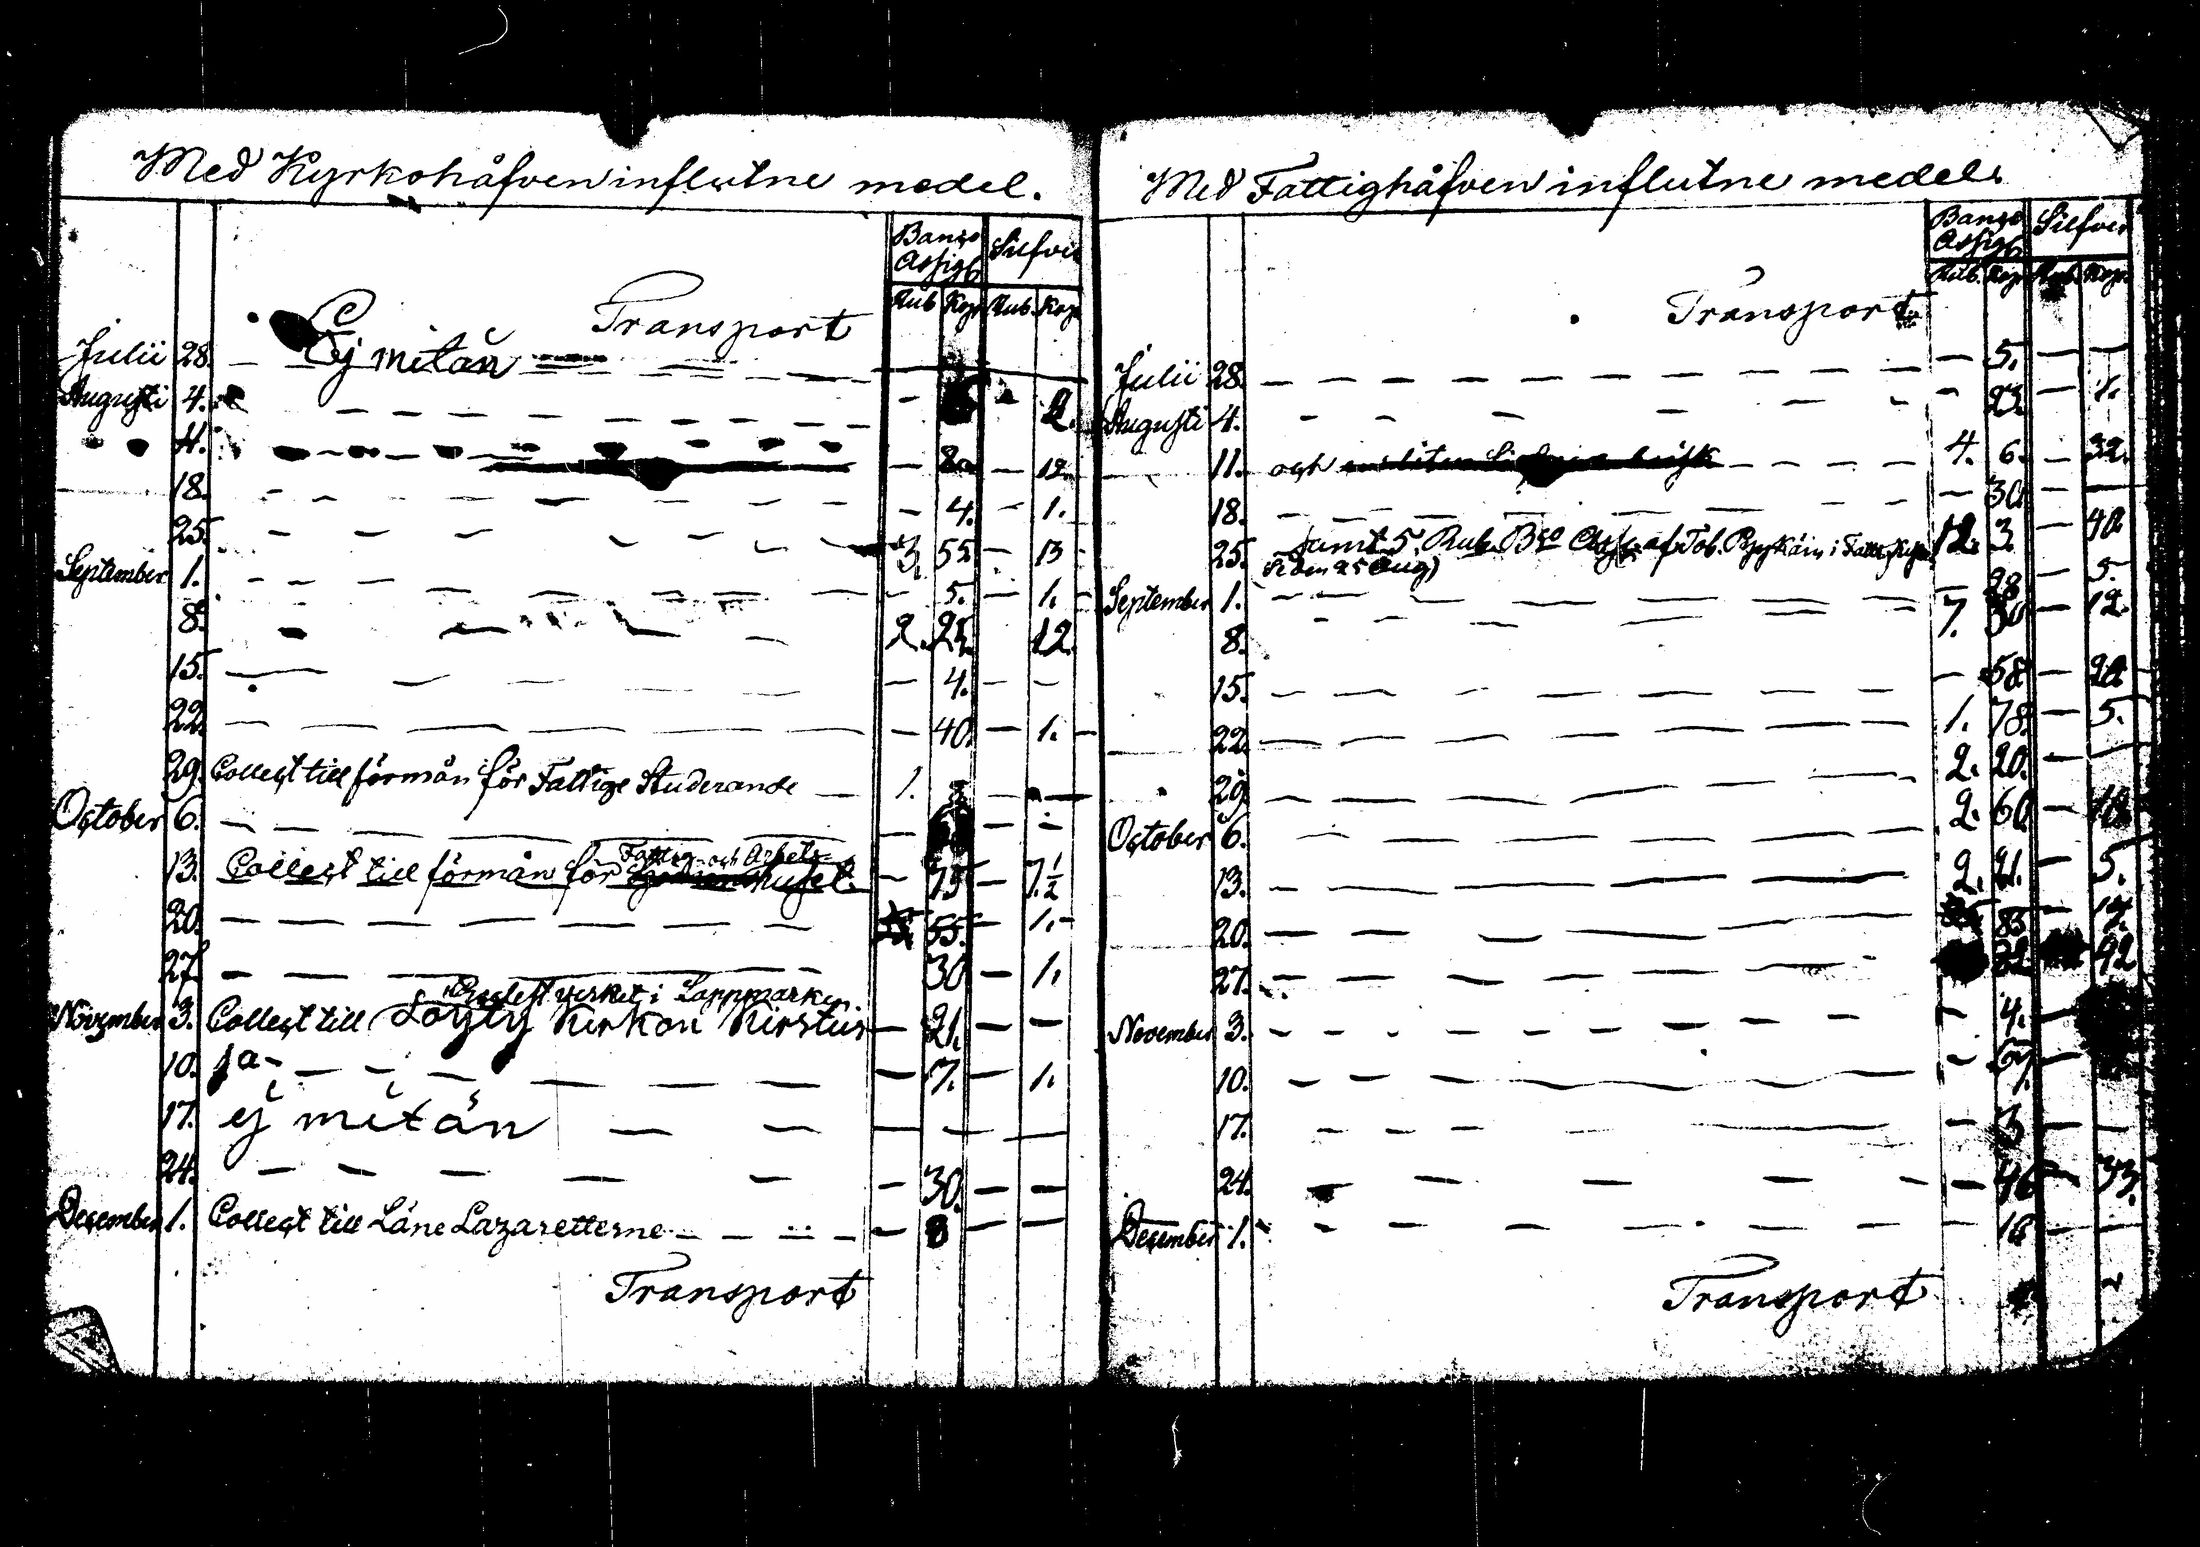 Med Kyrkohåfven influtne medel.
Banco Assign. Silfver
Rub. Kop. Rub. Kop.
Transport
Julii 28. Ej mitän
Augusti 4. — — — 2.
11. — — 12.
18. — 4. — 1.
25. 3. 55. — 13
September 1. — 5. — 1.
8. 2. 25. 12.
15. — 4. — —
22. — 40. — 1.
29. Collect till förmån för Fattige Studerande — 1. — —
October 6. — — —
13. Collect till förmån för Fattig- och Arbets- huset. — 75 — 7 1/2
20. 55. — 1.
27. 30 — 1.
Ecclest verket i Lappmarken
November 3. Collect till Löyty Kirkon Kirstus — 21. — —
10. ja — 7. — 1.
17. ej mitän — — — —
24. — 30. — —
December 1. Collect till Läne Lazaretterne — 8 — —
Transport
Med Fattighåfven influtne medel.
Banco Assign. Silfver
Rub. Kop. Rub. Kop.
Transport
Julii 28. — 5. — —
Augusti 4. — 23. — 1.
11. och 4. 6. — 32.
18. — 30. — —
25. samt 5. Rub. Bco Assign. af Tob. Pyykäin i 12. 3. — 40
(den 25 Aug)
September 1. — 28 — 5.
8. 7. 50 — 12.
15. — 58. — 20.
22. 1. 78. — 5.
29. 2. 20. —
October 6. 2. 60 — 10.
13. 2. 21. — 5.
20. 85 —
27. 32 42
November 3. — 4. —
10. — 57. —
17. — 3 — —
24. — 46 — 33.
December 1. — 18 — —
Transport